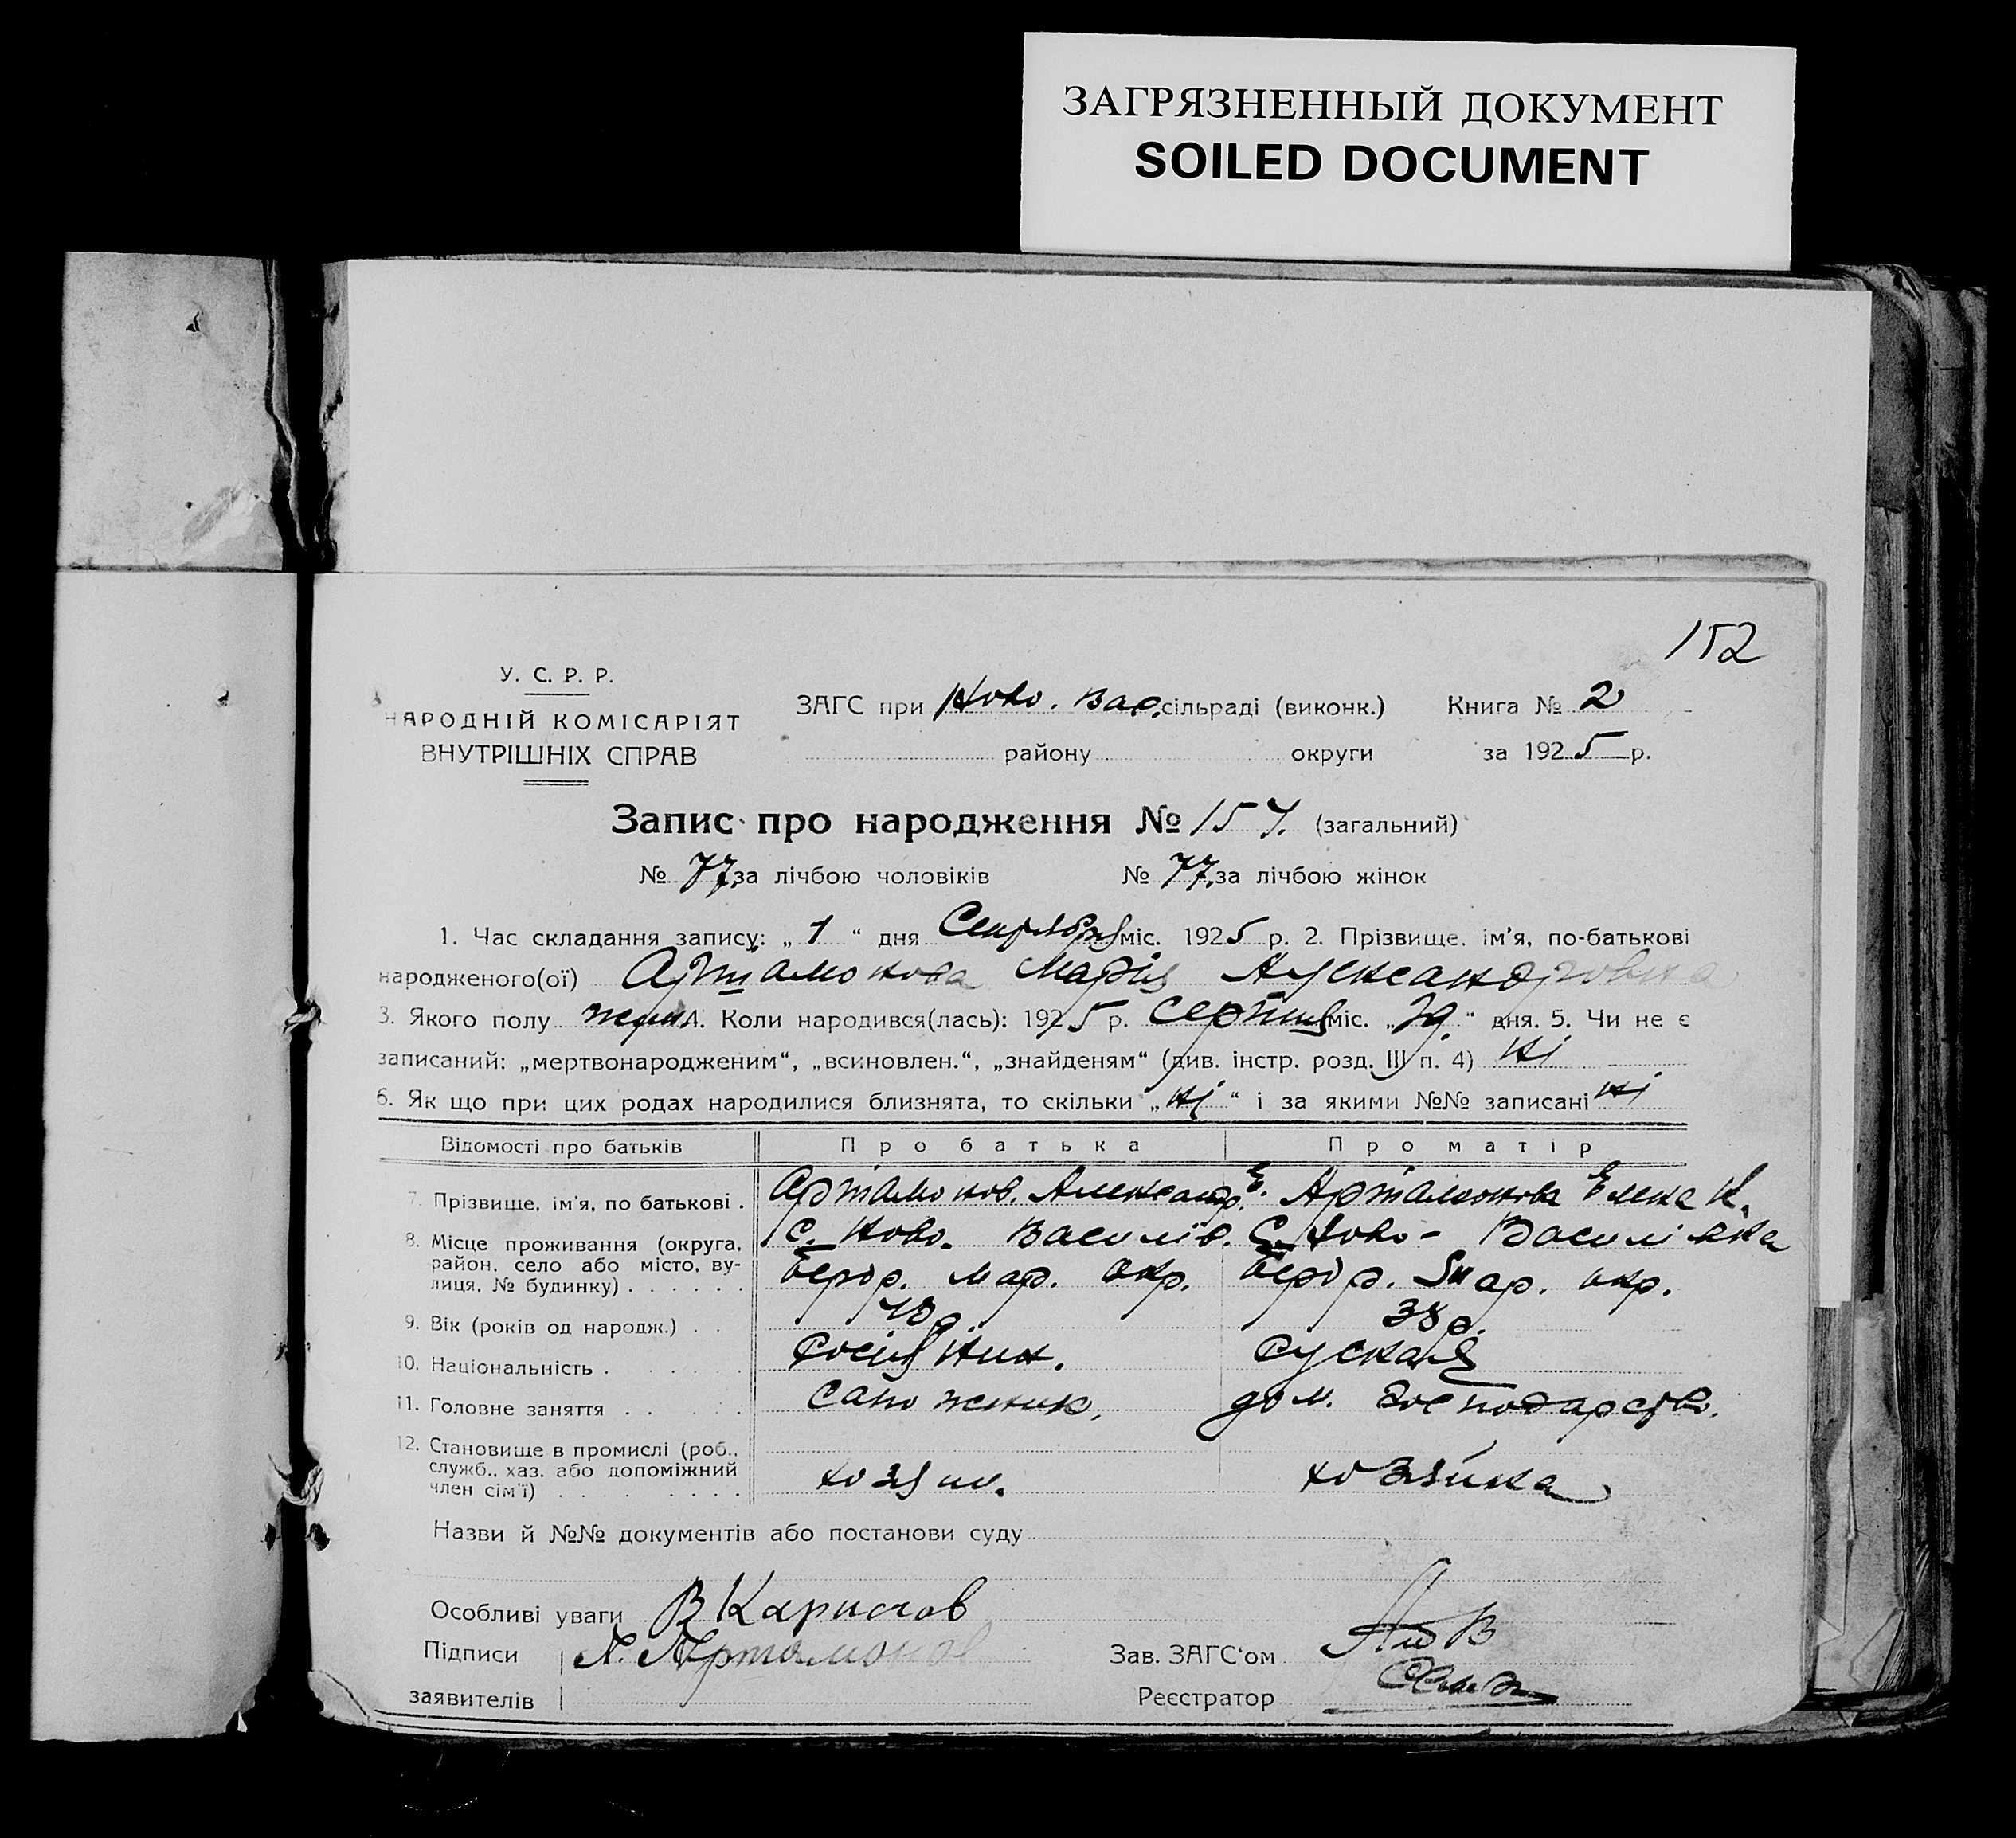 ЗАГРЯЗНЕННЫЙ ДОКУМЕНТ
SOILED DOCUMENT
152
У. С. Р. Р.
НАРОДНІЙ КОМІСАРІЯТ
ВНУТРІШНІХ СПРАВ
ЗАГС при Ново. Вас. сільраді (виконк.) Книга № 2
району округи за 1925 р.
Запис про народження № 154. (загальний)
№ 77. за лічбою чоловіків № 77. за лічбою жінок
1. Час складання запису: „ 1 “ дня Сентября міс. 1925 р. 2. Прізвище, ім'я, по-батькові
народженого(ої) Артамонова Марія Александровна
3. Якого полу жен. 4. Коли народився(лась): 1925 р. серпня міс. „ 29. “ дня. 5. Чи не є
записаний: „мертвонародженим“, „всиновлен.“, „знайденям“ (див. інстр. розд. III п. 4) ні
6. Як що при цих родах народилися близнята, то скільки „ ні “ і за якими №№ записані ні
Відомості про батьків Про батька Про матір
7. Прізвище, ім'я, по батькові . Артамонов. Александр. Е. Артамонова Елена К.
8. Місце проживання (округа, район, село або місто, вулиця, № будинку) . . . . . . с. Ново. Василів. с. Ново- Василівка
р. Мар. окр. р. Мар. окр.
9. Вік (років од народж.) . . 40 р. 38 р.
10. Національність . росіянин. руская
11. Головне заняття . . сапожник. дом. господарство.
12. Становище в промислі (роб., служб., хаз. або допоміжний член сім'ї) хозяин. хозяйка
Назви й №№ документів або постанови суду
Особливі уваги В
Підписи А. Артамонов Зав. ЗАГС'ом
заявителів Реєстратор